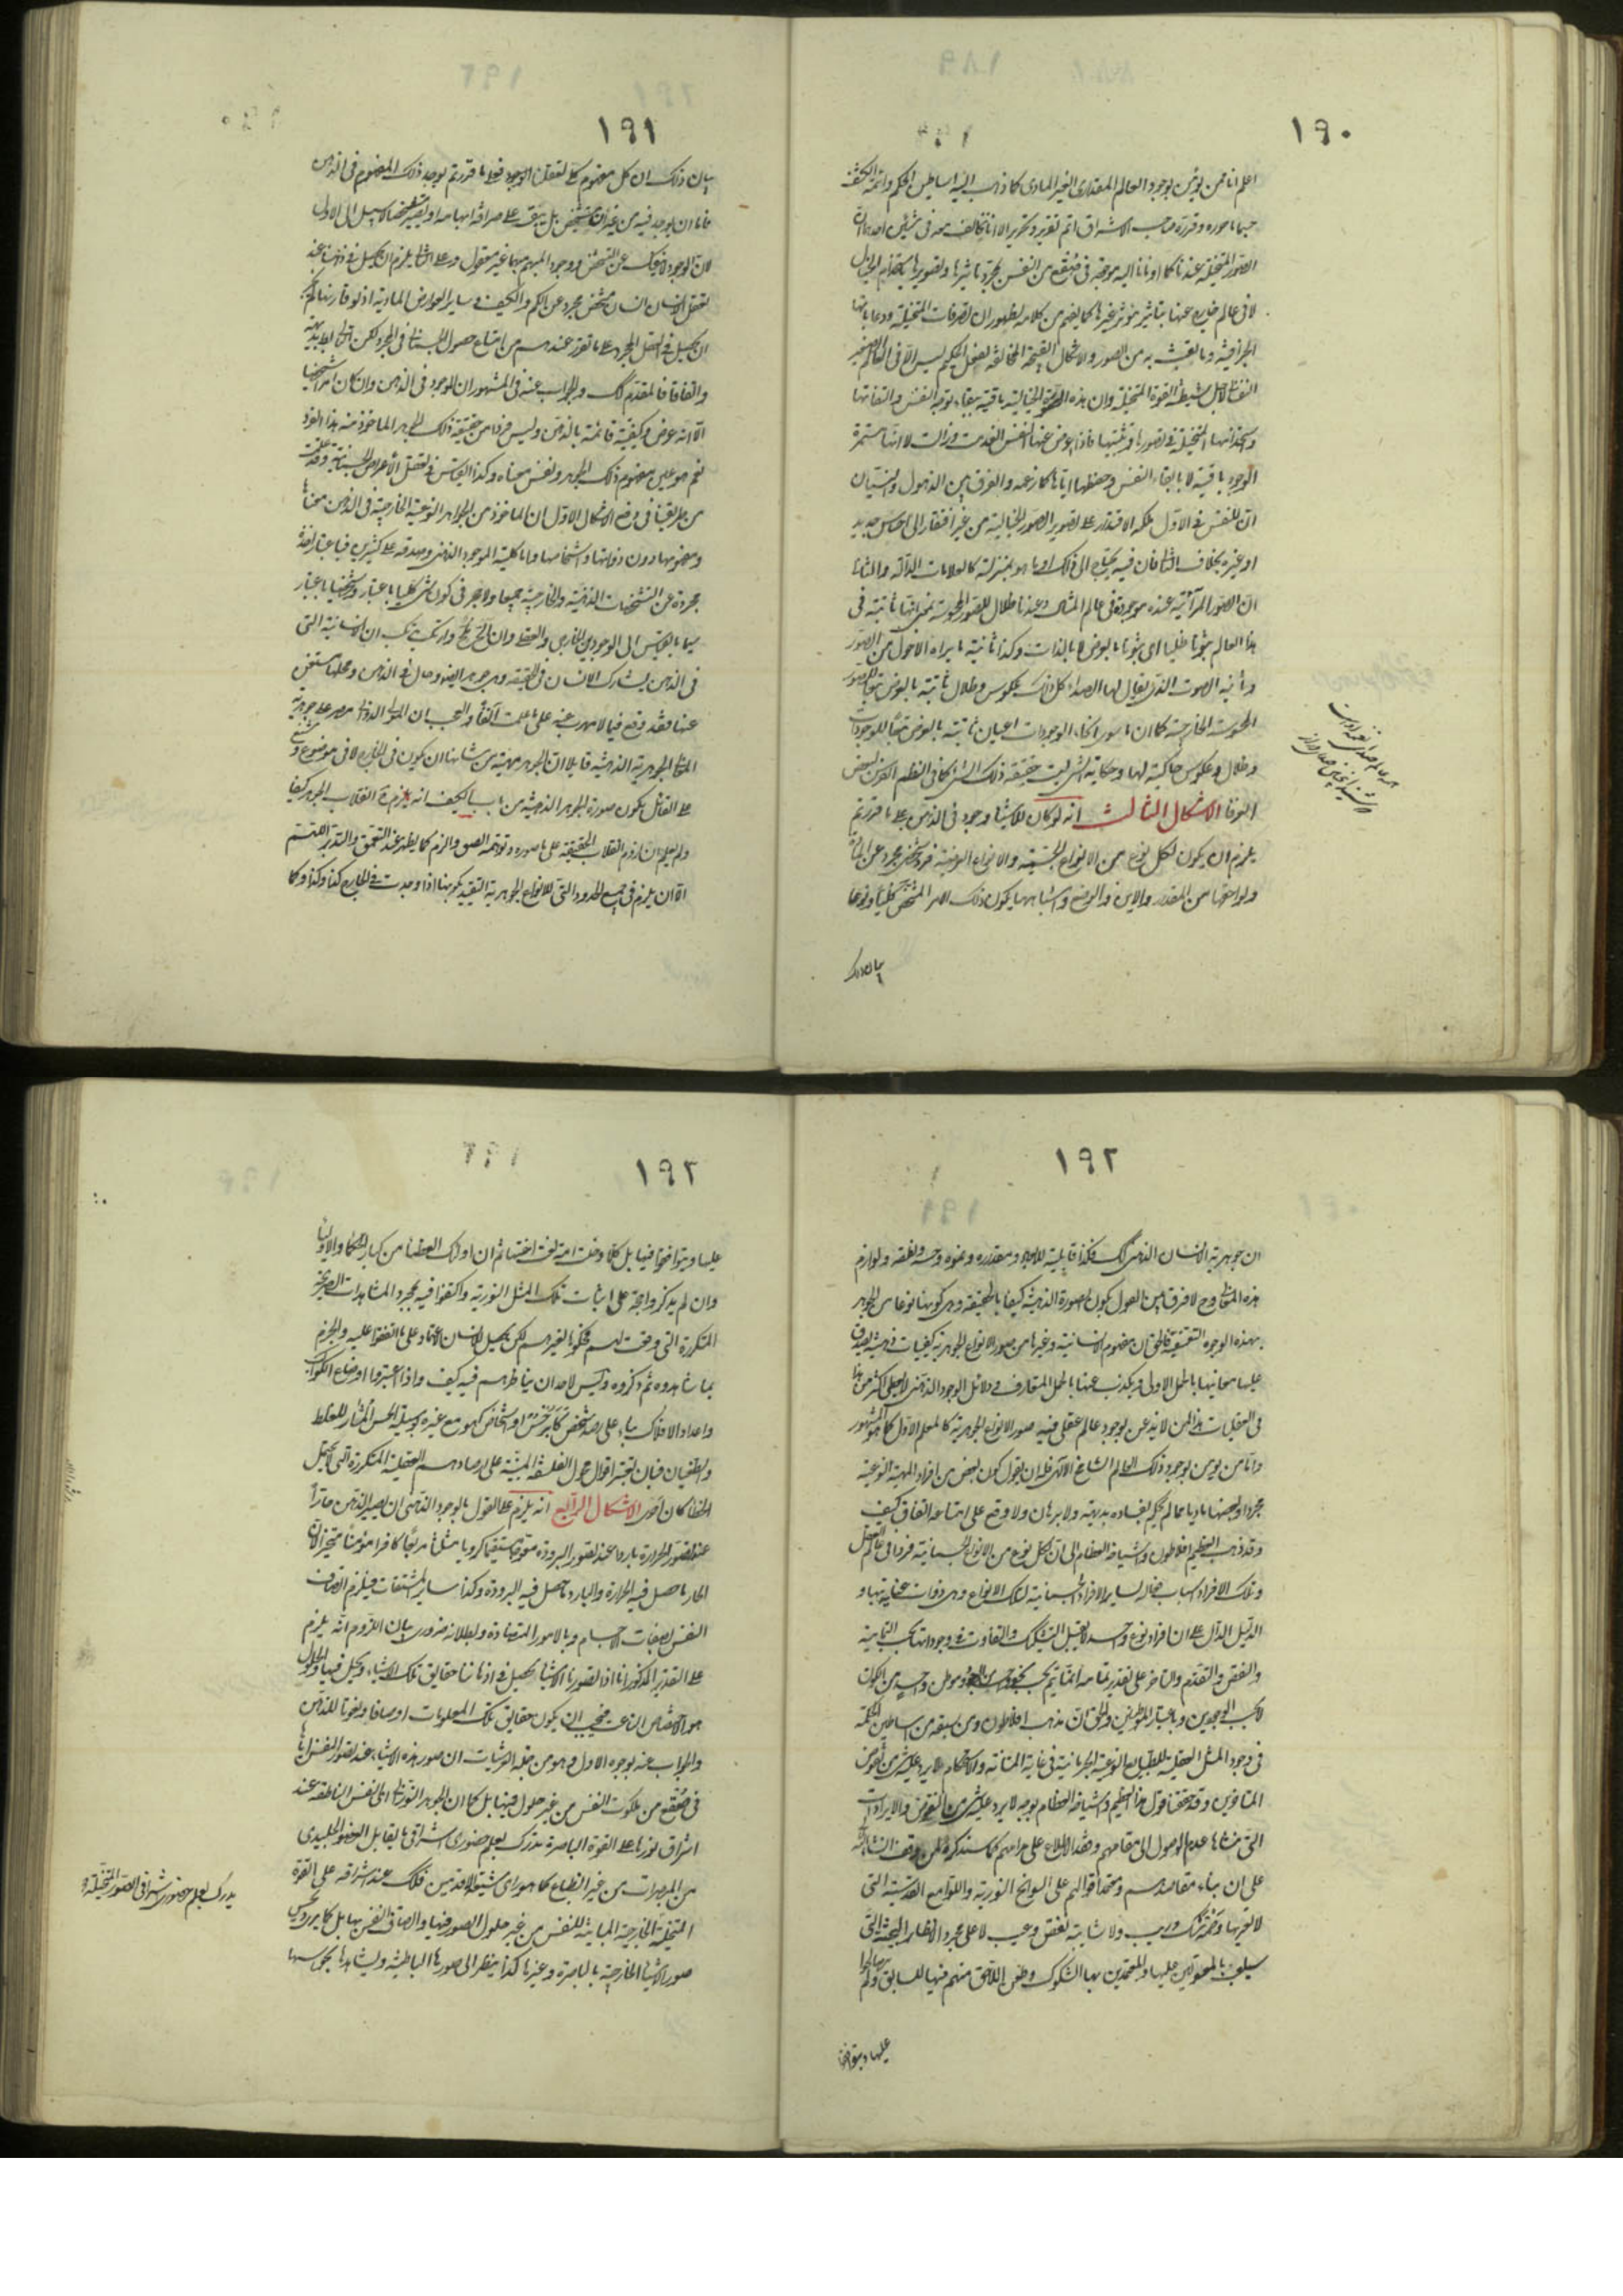 ١٩٠
اعلم انا ممن يؤمن بوجود العالم المقداری الغير المادی كما ذهب اليه اساطين الحكمة وائمة الكشف
حسبما حرره وقرره صاحب الاشراق اتم تقرير وتحرير الا انا نخالف معه فى شيئين احدهما ان
الصور المتخيلة عندنا كما اومأنا اليه موجودة فى صقع من النفس بمجرد تأثيرها وتصويرها باستخدام الخيال
لا فى عالم خارج عنها بتأثير مؤثر غيرها كما يفهم من كلامه لظهور ان تصرفات المتخيلة ودعاباتها
الجزافية وما يعبث به من الصور والاشكال القبيحة المخالفة لفعل الحكيم ليس الا فى العالم الصغير
النفسانى لاجل شيطنة القوة المتخيلة وان هذه الصور الخيالية باقية ببقاء توجه النفس والتفاتها
واستخدامها المتخيلة فى تصويرها وتثبيتها فاذا اعرض عنها النفس انعدمت وزالت لا انها مستمرة
الوجود باقية لا بابقاء النفس وحفظها اياها كما زعمه والفرق بين الذهول والنسيان
ان للنفس فى الاول ملكة الاقتدار على تصوير الصور الخيالية من غير افتقار الى احساس جديد
او غيره بخلاف الثانى فان فيه يحتاج الى ذلك او ما هو بمنزلته كالعلامات الدالة والثانى
ان الصور المرآتية عنده موجودة فى عالم المثال وعندنا ظلال للصور المحسوسة بمعنى انها ثابتة فى
هذا العالم ثبوتا ظليا اى ثبوتا بالعرض لا بالذات وكذا ثانية ما يراه الاحول من الصور
وثانية الصوت الذى يقال لها الصداء كل ذلك عكوس وظلال ثابتة بالعرض تبعا للصور
المحسوسة الخارجية كما ان ما سوى انحاء الوجودات اعيان ثابتة بالعرض تبعا للوجودات
وظلال وعكوس حاكية لها وحكاية الشئ ليست حقيقة ذلك الشئ كما فى النظم الفرس لبعض
العرفا الاشكال الثالث انه لو كان للاشياء وجود فى الذهن على ما قررتم
يلزم ان يكون لكل نوع من الانواع الجسمية والانواع العرضية فرد شخصى مجرد عن المادة
ولواحقها من المقدار والاين والوضع واشباهها يكون ذلك الامر المشخص كليا ونوعا
بيان ذلك
١٩١
بيان ذلك ان كل مفهوم كلى تعقلنا الوجود فعلى ما قررتم يوجد ذلك المفهوم فى الذهن
فاما ان يوجد فيه من غير ان يتشخص بل يبقى على صرافة ابهامه او يصير متشخصا لا سبيل الى الاول
لان الوجود لا ينفك عن التشخص ووجود المبهم مبهما غير معقول وعلى الثانى يلزم ان يحصل فى ذهننا عند
تعقل الانسان انسان مشخص مجرد عن الكم والكيف وساير العوارض المادية اذ لو قارنها لم يجز
ان يحصل فى العقل المجرد على ما تقرر عندهم من امتناع حصول الجسمانى فى المجرد لكن التالى باطل بديهة
واتفاقا فالمقدم كك والجواب عنه فى المشهور ان الموجود فى الذهن وان كان امرا شخصيا
الا انه عرض وكيفية قائمة بالذهن وليس فردا من حقيقة ذلك الجوهر الماخوذ منه هذا الفرد
نعم هو عين مفهوم ذلك الجوهر ونفس معناه وكذا القياس فى تعقل الاعراض الجسمانية وقد علمت
من طريقتنا فى دفع الاشكال الاول ان الماخوذ من الجواهر النوعية الخارجية فى الذهن معناها
ومفهومها دون ذواتها واشخاصها واما كلية الموجود الذهنى وصدقه على كثيرين فباعتبار اخذه
مجردة عن التشخصات الذهنية والخارجية جميعا ولا حجر فى كون شئ كليا باعتبار وشخصيا باعتبار
سيما بالقياس الى الوجودين الخارجى والعقلى وان الح ملح وارتكب مرتكب ان الانسانية التى
فى الذهن يشارك الانسان فى الحقيقة وهى جوهر ايضا وحال فى الذهن ومحلها مستغن
عنها فقد وقع فيما لا مهرب عنه على ما علمت آنفا والعجب ان المولى الدوانى مصر على جوهرية
المعانى الجوهرية الذهنية قايلا ان الجوهر مهية من شانها ان يكون فى الخارج لا فى موضوع وشنع
على القائل بكون صورة الجوهر الذهنية من باب الكيف انه يلزم ح انقلاب الجوهر كيفا
ولم يعلم ان لزوم انقلاب الحقيقة على ما صوره وتوهمه الصق والزم كما يظهر عند التعمق والتدبر اللهم
الا ان يلزم فى جميع الحدود التى للانواع الجوهرية التقييد بكونها اذا وجدت فى الخارج كذا وكذا وكما
١٩٢
ان جوهرية الانسان الذهنى كك فكذا قابليته للابعاد ومقداره ونموه وحسه ونطقه ولوازم
هذه المعانى وح لا فرق بين القول بكون الصورة الذهنية كيفا بالحقيقة وهى كونها نوعا من الجوهر
بهذه الوجوه التعسفية فالحق ان مفهوم الانسانية وغيرها من صور الانواع الجوهرية كيفيات ذهنية يصدق
عليها معانيها بالحمل الاولى ويكذب عنها بالحمل المتعارف ودلائل الوجود الذهنى لا يعطى اكثر من هذا
فى العقليات هذا لمن لا يذعن بوجود عالم عقلى فيه صور الانواع الجوهرية كالمعلم الاول كما هو المشهور
واما من يؤمن بوجود ذلك العالم الشامخ الالهى فله ان يقول كون بعض من افراد المهية النوعية
مجردا وبعضها ماديا مما لم يحكم بفساده بديهة ولا برهان ولا وقع على امتناعه اتفاق كيف
وقد ذهب العظيم افلاطون واشياخه العظام الى ان لكل نوع من الانواع الجسمانية فردا فى عالم العقل
وتلك الافراد اسباب فعالة لساير الافراد الجسمانية لتلك الانواع وهى ذوات عناية بها و
الدليل الدال على ان افراد نوع واحد لا يقبل التشكيك والتفاوت فى وجوداتها بحسب التمامية
والنقص والتقدم والتاخر على تقدير تمامه انما يتم بحسب نحو واحد من الوجود وموطن واحد من الكون
لا بحسب الوجودين وباعتبار الموطنين والحق ان مذهب افلاطون ومن سبقه من اساطين الحكمة
فى وجود المثل العقلية للطبايع النوعية الجرمانية فى غاية المتانة والاستحكام لا يرد عليه شئ من نقوض
المتاخرين وقد حققنا قول هذا العظيم واشياخه العظام بوجه لا يرد عليه شئ من النقوض والايرادات
التى منشاها عدم الوصول الى مقامهم وفقد الاطلاع على مرامهم كما سنذكره لمن وفق له انشاء الله
على ان بناء مقاصدهم ومعتمد اقوالهم على السوانح النورية واللوامع القدسية التى
لا يعتريها وصمة شك وريب ولا شائبة نقص وعيب لا على مجرد الانظار البحثية التى
سيلعب بالمعولين عليها والمعتمدين بها الشكوك وطعن اللاحق منهم فيها للسابق ولم يتصالحوا
عليها ويتوافقوا
١٩٢
عليها ويتوافقوا فيها بل كلما دخلت امة لعنت اختها ثم ان اولئك العظماء من كبار الحكما والاوليا
وان لم يذكروا حجة على اثبات تلك المثل النورية واكتفوا فيه بمجرد المشاهدات الصريحة
المتكررة التى وقعت لهم فحكوها لغيرهم لكن يحصل للانسان الاعتماد على ما اتفقوا عليه والجزم
بما شاهدوه ثم ذكروه وليس لاحد ان يناظرهم فيه كيف واذا اعتبروا اوضاع الكواكب
واعداد الافلاك بناء على رصد شخص كابرخس او اشخاص كهو مع غيره بوسيلة الحس المثار للغلط
والطغيان فبان يعتبر اقوال فحول الفلسفة المبنية على ارصادهم العقلية المتكررة التى لا يحتمل
الخطاء كان احرى الاشكال الرابع انه يلزم على القول بالوجود الذهنى ان يصير الذهن حارا
عند تصور الحرارة باردا عند تصور البرودة معوجا مستقيما كرويا مثلثا مربعا كافرا مؤمنا متحيزا لان
الحار ما حصل فيه الحرارة والبارد ما حصل فيه البرودة وكذا ساير المشتقات فيلزم اتصاف
النفس بصفات الاجسام وبالامور المتضادة وبطلانه ضرورى بيان اللزوم انه يلزم
على التقدير المذكور انا اذا تصورنا الاشياء يحصل فى اذهاننا حقايق تلك الاشياء وتحل فيها والحلول
هو الاختصاص الناعت فيجب ان يكون حقايق تلك المعلومات اوصافا ونعوتا للذهن
والجواب عنه بوجوه الاول وهو من جملة العرشيات ان صور هذه الاشياء عند تصور النفس اياها
فى صقع من ملكوت النفس من غير حلول فيها بل كما ان الجوهر النورانى اى النفس الناطقة عند
اشراق نورها على القوة الباصرة تدرك بعلم حضورى اشراقى ما يقابل العضو الجليدى
من المبصرات من غير انطباع كما هو رأى شيعة الاقدمين فكك عند اشراقه على القوة
المتخيلة الخارجية المباينة للنفس من غير حلول الصور فيها واتصاف النفس بها بل كما يرى ويحس
صور الاشياء الخارجية بالباصرة وغيرها كذا ينظر الى صورها الباطنية ويشاهدها بحواسها
يدرك بعلم حضورى اشراقى الصور المتخيلة